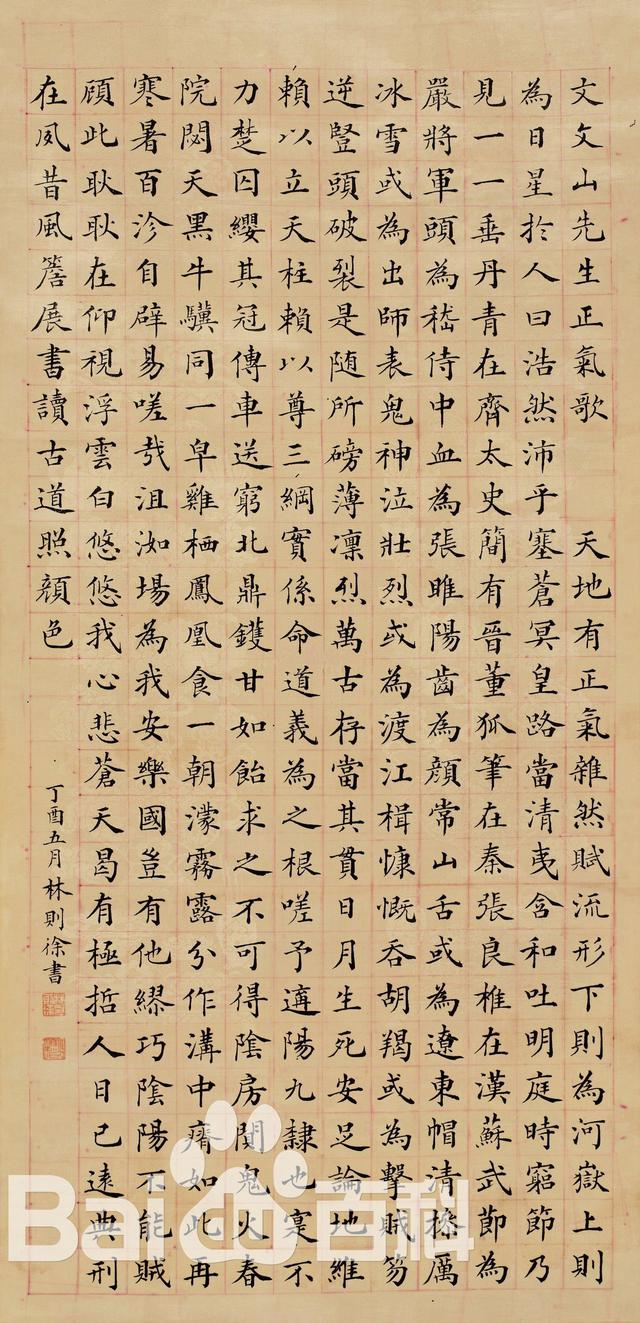 文文山先生正氣歌 天地有正氣雜然賦流形下則為河嶽上則
為日星於人曰浩然沛乎塞蒼冥皇路當清夷含和吐明庭時窮節乃
見一一垂丹青在齊太史簡有晉董狐筆在秦張良椎在漢蘇武節為
嚴將軍頭為嵇侍中血為張睢陽齒為顏常山舌或為遼東帽清操厲
冰雪或為出師表鬼神泣壯烈或為渡江楫慷慨吞胡羯或為擊賊笏
逆豎頭破裂是随所磅薄凛烈萬古存當其貫日月生死安足論地維
賴以立天柱賴以尊三綱實係命道義為之根嗟予遘陽九隸也寔不
力楚囚纓其冠傳車送窮北鼎鑊甘如飴求之不可得陰房闃鬼火春
院閟天黑牛驥同一皁雞栖鳳凰食一朝濛霧露分作溝中瘠如此再
寒暑百沴自辟易嗟哉沮洳場為我安樂國豈有他繆巧陰陽不能賊
顧此耿耿在仰視浮雲白悠悠我心悲蒼天曷有極哲人日已遠典刑
在夙昔風簷展書讀古道照顏色
丁酉五月林則徐書
Bai百科